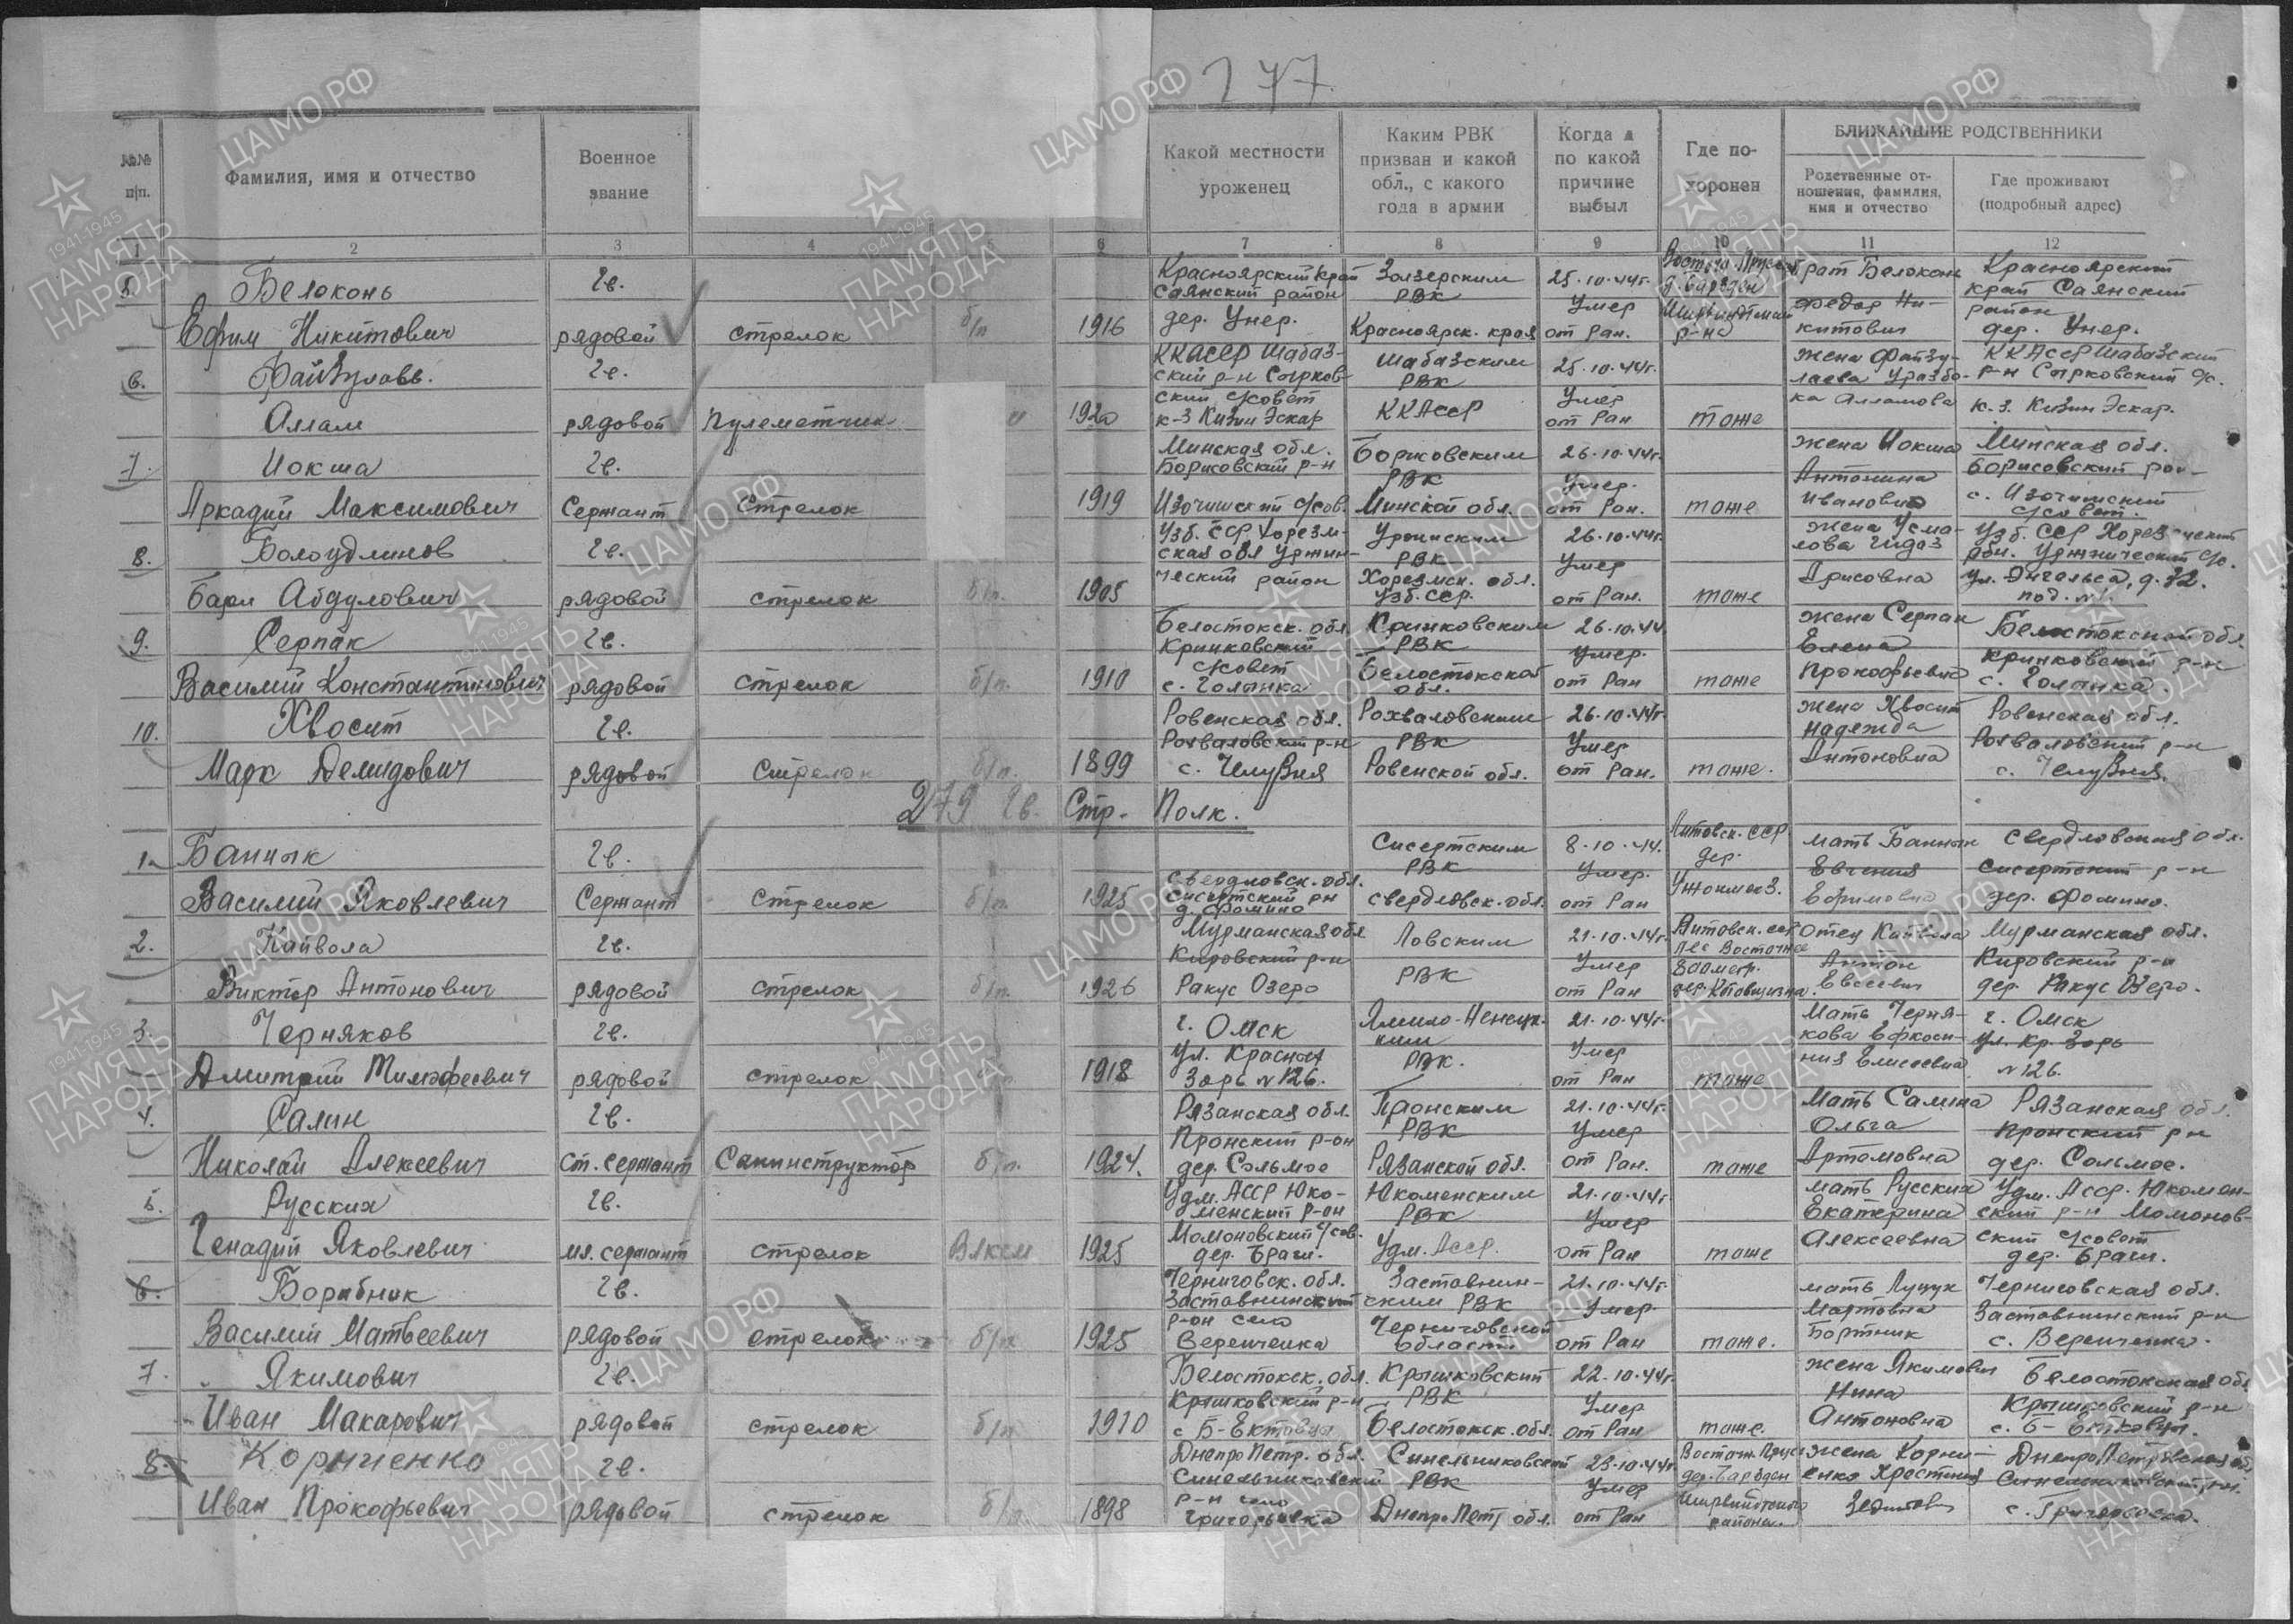 277.
№№ п/п.
Фамилия, имя и отчество
Военное звание
Какой местности уроженец
Каким РВК призван и какой обл., с какого года в армии
Когда и по какой причине выбыл
Где похоронен
БЛИЖАЙШИЕ РОДСТВЕННИКИ
Родственные отношения, фамилия, имя и отчество
Где проживают (подробный адрес)
1 2 3 4 5 6 7 8 9 10 11 12
5. Белоконь Ефим Никитович гв. рядовой стрелок б/п 1916 Красноярский край Саянский район дер. Унер. РВК Красноярск. края 25.10.44г. Умер от Ран. р-на брат Белоконь Федор Никитович Красноярский край Саянский район дер. Унер.
6. Алам гв. рядовой пулеметчик 1920 ККАССР Шабазский р-н Сырковский с/совет к-з Кизил Эскар Шабазским РВК ККАССР 25.10.44г. Умер от Ран тоже жена ККАССР Шабазский р-н Сырковский с/с. к.з. Кизил Эскар.
7. Иокша Аркадий Максимович гв. Сержант Стрелок 1919 Минская обл. Борисовский р-н с/сов. Борисовским РВК Минской обл. 26.10.44г. Умер. от Ран. тоже жена Иокша Антонина Ивановна Минская обл. Борисовский с/совет.
8. гв. рядовой стрелок б/п. 1905 Узб. ССР Хорезмская обл район РВК Хорезмск. обл. Узб. ССР. 26.10.44г. Умер от Ран. тоже жена Узб. ССР ул. Энгельса, д. 72.
9. Серпак Василий Константинович гв. рядовой стрелок б/п. 1910 Белостокск. обл. Кринковский с/совет с. Голынка Кринковским РВК Белостокской обл. 26.10.44. Умер. от Ран тоже жена Серпак Елена Прокофьевна Белостокской обл. Кринковский р-н с. Голынка.
10. Хвосит Марк Демидович гв. рядовой стрелок б/п. 1899 Ровенская обл. Рохваловский р-н с. Рохваловским РВК Ровенской обл. 26.10.44г. Умер от Ран. тоже. жена Хвосит Надежда Антоновна Ровенская обл. Рохваловский р-н с.
279 Гв. Стр. Полк.
1. Банных Василий Яковлевич гв. Сержант Стрелок б/п. 1925 Свердловск. обл. Сисертский рн д. Фомино Сисертским РВК Свердловск. обл. 8.10.44. Умер. от Ран Литовск. ССР. дер. мать Банных Евгения Ефимовна Свердловская обл. Сисертский р-н дер. Фомино.
2. Кайвола Виктор Антонович гв. рядовой стрелок б/п. 1926 Мурманская обл Кировский р-н Ракус Озеро Ловским РВК 21.10.44г. Умер от Ран Литовск. сср лес Восточнее дер. Отец Кайвола Антон Евсеевич Мурманская обл. Кировский р-н дер. Ракус Озеро.
3. Черняков Дмитрий Тимофеевич гв. рядовой стрелок 1918 г. Омск ул. Красных Зорь №126. РВК. 21.10.44г. Умер от Ран тоже Мать Чернякова Елисеевна г. Омск ул. Кр. Зорь №126.
4. Салин Николай Алексеевич гв. Ст. сержант Санинструктор б/п. 1924. Рязанская обл. Пронский р-он дер. Сольмое Пронским РВК Рязанской обл. 21.10.44г. Умер от Ран. тоже Мать Салина Ольга Артомовна Рязанская обл. Пронский рн дер. Сольмое.
5. Русских Генадий Яковлевич гв. мл. сержант стрелок ВЛКСМ 1925 Удм. АССР Юкоменский р-он Момоновский с/сов. дер. Браги. Юкоменским РВК Удм. АССР. 21.10.44г Умер от Ран тоже мать Русских Екатерина Алексеевна Удм. АССР. Юкоменский р-н Момоновский с/совет дер. Браги.
6. Василий Матвеевич гв. рядовой стрелок б/п 1925 Черниговск. обл. Заставнинский р-он село Веренченка Заставнинским РВК Черниговской области 21.10.44г. Умер. от Ран тоже. мать Мартовна Бортник Черниговская обл. Заставнинский р-н с. Веренченка.
7. Якимович Иван Макарович гв. рядовой стрелок б/п 1910 Белостокск. обл. Крышковский р-н Крышковский РВК Белостокск. обл. 22.10.44г. Умер от Ран тоже. жена Якимович Нина Антоновна Белостокская обл Крышковский р-н
8. Корниенко Иван Прокофьевич гв. рядовой стрелок б/п 1898 ДнепроПетр. обл. Синельниковский р-н село Григорьевка Синельниковский РВК ДнепроПетр обл. 23.10.44г. Умер от Ран Восточн. Прус. дер. района. жена Корниенко ДнепроПетровская обл Синельниковский р-н. с. Григорьевка.
ЦАМО.РФ
ПАМЯТЬ НАРОДА
1941-1945